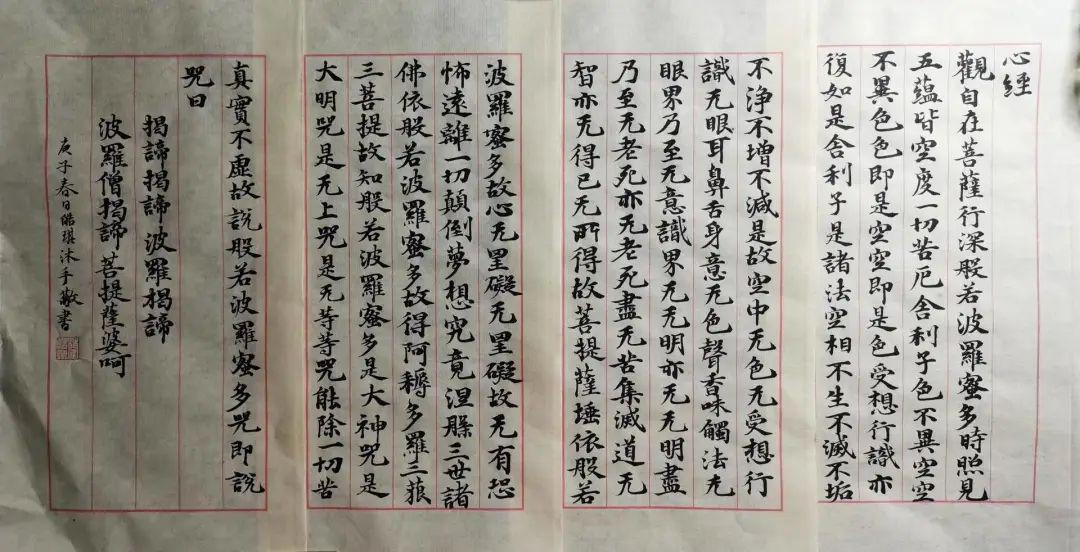 心經
觀自在菩薩行深般若波羅蜜多時照見
五蘊皆空度一切苦厄舍利子色不異空空
不異色色即是空空即是色受想行識亦
復如是舍利子是諸法空相不生不滅不垢
不淨不增不減是故空中无色无受想行
識无眼耳鼻舌身意无色聲香味觸法无
眼界乃至无意識界无无明亦无无明盡
乃至无老死亦无老死盡无苦集滅道无
智亦无得已无所得故菩提薩埵依般若
波羅蜜多故心无罣礙无罣礙故无有恐
怖遠離一切顛倒夢想究竟涅槃三世諸
佛依般若波羅蜜多故得阿耨多羅三藐
三菩提故知般若波羅蜜多是大神咒是
大明咒是无上咒是无等等咒能除一切苦
真實不虛故說般若波羅蜜多咒即說
咒曰
揭諦揭諦波羅揭諦
波羅僧揭諦菩提薩婆呵
庚子春日皓琪沐手敬書